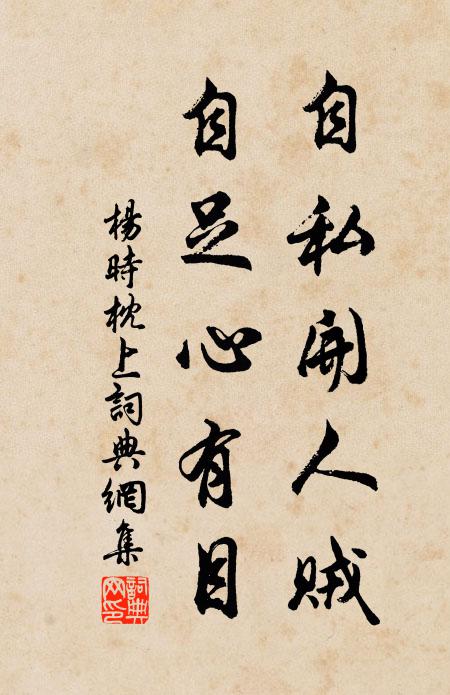 自私開人賊
自足心有目
楊時枕上詞典網集
詞典網印